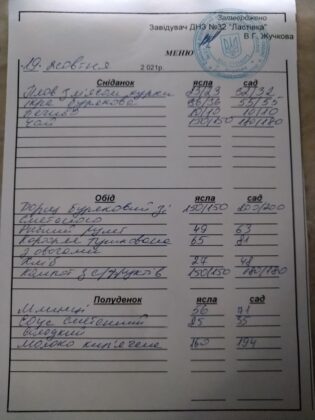 Затверджено
Завідувач ДНЗ №32 "Ластівка"
В.Г. Жучкова
МЕНЮ
19 жовтня 2021р.
Сніданок ясла сад
Плов з м'ясом курки
Ікра бурякова 55/55
10/10 10/10
Чай 150/150 180/180
Обід ясла сад
Борщ Буряковий зі 150/150 200/200
сметаною
Рибний рулет 49 63
Картопля тушкована 65 81
з овочами
Хліб 27 42
Компот з с/фруктів 150/150 180/180
Полуденок ясла сад
Млинці 56 71
Соус сметанний 25 35
солодкий
молоко кип'ячене 160 194